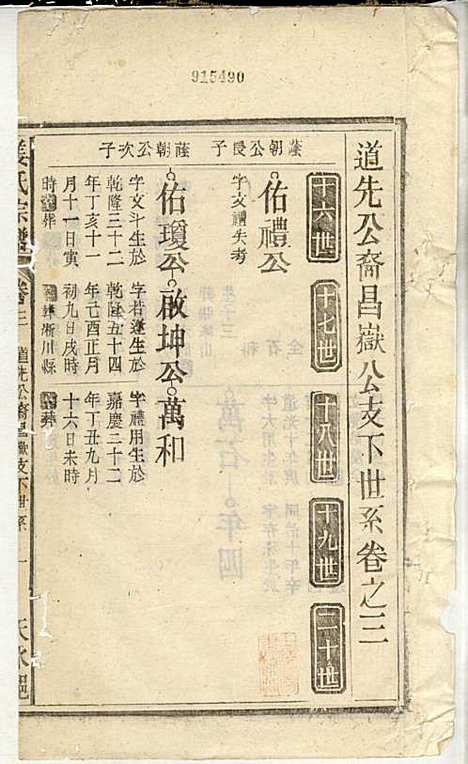 915490
道先公裔昌嶽公支下世系卷之三
十六世
十七世
十八世
十九世
二十世
蔭朝公長子
佑禮公
字文禮失考
蔭朝公次子
佑瓊公
啟坤公
萬和
字文斗生於
乾隆三十二
年丁亥十一
月十一日寅
時
葬
字若蓬生於
乾隆五十四
年己酉正月
初九日戌時
葬淅川縣
字禮用生於
嘉慶二十二
年丁丑九月
十六日未時
葬
姜氏宗譜
卷之三
道先公裔昌嶽支下世系
一
天水郡